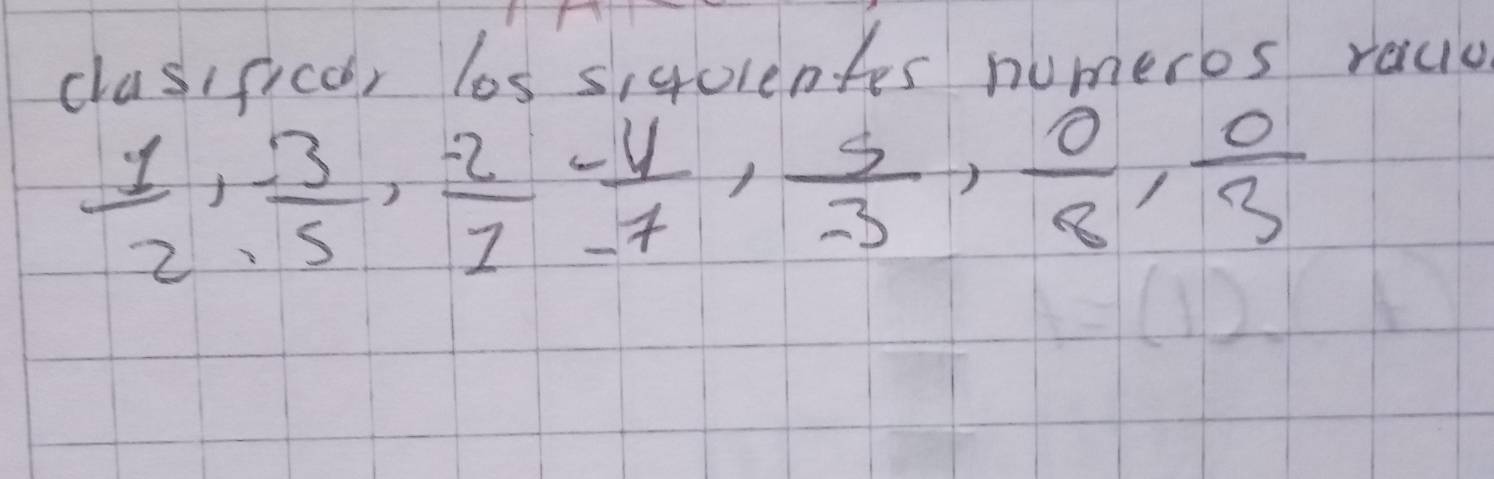 clasificar los siguientes numeros racio
1/2, -3/5, -2/1 -4/-7, 5/-3, 0/8, 0/3